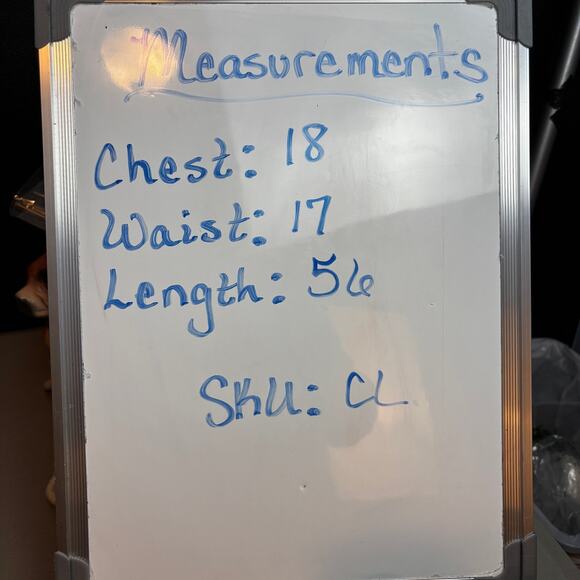 Measurements
Chest: 18
Waist: 17
Length: 56
Sku: CL